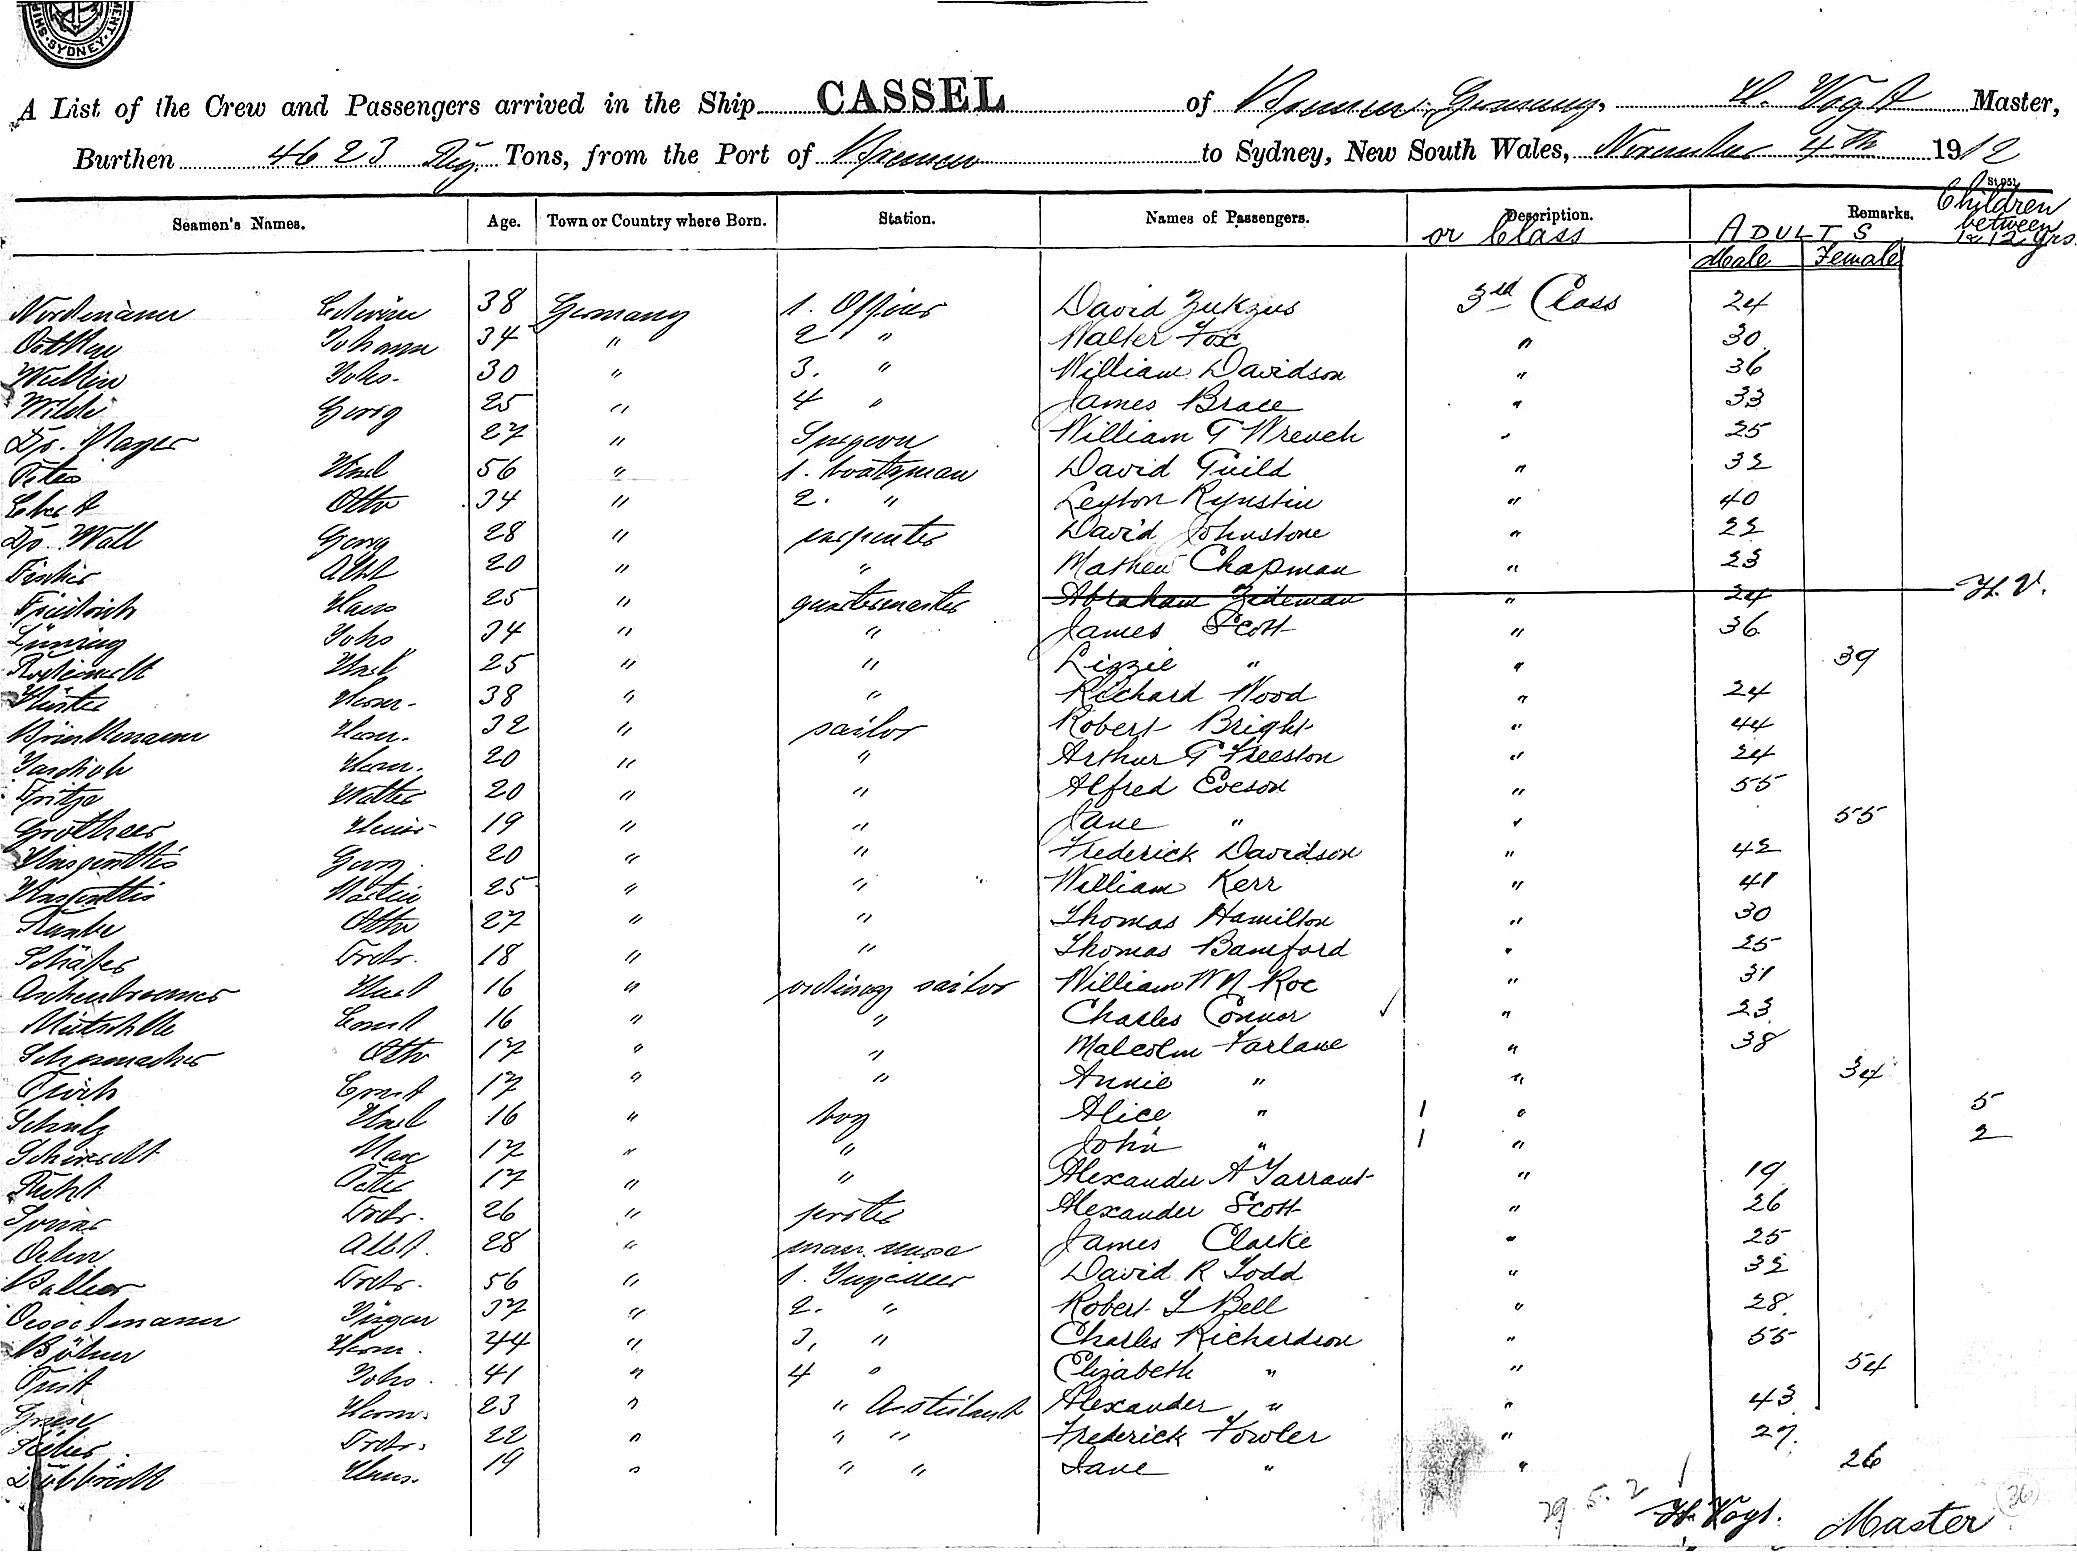 SYDNEY
A List of the Crew and Passengers arrived in the Ship CASSEL of Bremen Germany, H. Vogt Master,
Burthen 4623 Reg. Tons, from the Port of Bremen to Sydney, New South Wales, November 4th 1912
Seamen's Names. Age. Town or Country where Born. Station. Names of Passengers. Description. or Class Remarks. ADULTS Male Female Children between 1 & 12 yrs.
Nordmann 38 Germany 1. Officer David Zukzus 3rd Class 24
Johann 34 " 2 " Walter Fox " 30
Johs. 30 " 3. " William Davidson " 36
Georg 25 " 4 " James Brace " 33
Dr. Mayer 27 " Surgeon William G Wrench " 25
Karl 56 " 1. boatsman David Guild " 32
Otto 34 " 2. " Leyton Rynstin " 40
Georg 28 " carpenter David Johnstone " 22
Fischer Albt 20 " " Mathew Chapman " 23
Friedrich Hans 25 " quartermaster Abraham Zideman " 24 H.V.
Lüning Johs 34 " " James Scott " 36
Karl 25 " " Lizzie " " 39
Küster Herm. 38 " " Richard Wood " 24
Brinkmann Herm. 32 " sailor Robert Bright " 44
Herm. 20 " " Arthur G Freeston " 24
Fritze Walter 20 " " Alfred Eveson " 55
Grotheer Heinr. 19 " " Jane " " 55
Georg 20 " " Frederick Davidson " 42
Martin 25 " " William Kerr " 41
Otto 27 " " Thomas Hamilton " 30
Schäfer Fredr. 18 " " Thomas Bamford " 25
Aschenbrenner Karl 16 " ordinary sailor William W N Roe " 31
Ernst 16 " " Charles Connor " 23
Schumacher Otto 17 " " Malcolm Farlane " 38
Ernst 17 " " Annie " " 34
Schulz Karl 16 " boy Alice " 1 " 5
Schmidt Max 17 " " John " 1 " 2
Peter 17 " " Alexander A Tarrant " 19
Fredr. 26 " porter Alexander Scott " 26
Albt. 28 " man nurse James Clarke " 25
Fredr. 56 " 1. Engineer David R Todd " 32
Jürgen 37 " 2. " Robert L Bell " 28
Herm. 44 " 3. " Charles Richardson " 55
Johs. 41 " 4 " Elizabeth " " 54
Herm. 23 " " Assistant Alexander " " 43
Fredr. 22 " " " Frederick Fowler " 27
Hans. 19 " " " Jane " " 26
29 5. 2 H. Vogt. Master 36